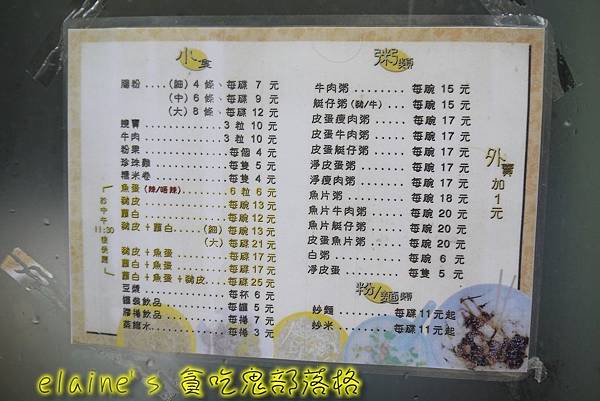 小食
腸粉....(細) 4 條、每碟 7 元
(中) 6 條、每碟 9 元
(大) 8 條、每碟 12 元
燒賣..............3 粒 10 元
牛肉..............3 粒 10 元
粉果..............每個 4 元
珍珠雞............每隻 5 元
糯米卷............每隻 4 元
魚蛋 (辣/唔辣)........6 粒 6 元
豬皮..............每碗 13 元
蘿白..............每碗 12 元
豬皮＋蘿白.....(細) 每碗 13 元
(大) 每碟 21 元
豬皮＋魚蛋........每碟 17 元
蘿白＋魚蛋........每碟 17 元
蘿白＋魚蛋＋豬皮....每碟 25 元
豆漿..............每杯 6 元
罐裝飲品..........每罐 5 元
膠樽飲品..........每樽 7 元
蒸餾水............每樽 3 元
於中午
11:30
後供應
粥類
牛肉粥........每碗 15 元
艇仔粥(豬/牛)....每碗 15 元
皮蛋瘦肉粥......每碗 17 元
皮蛋牛肉粥......每碗 17 元
皮蛋艇仔粥......每碗 17 元
淨皮蛋粥........每碗 17 元
淨瘦肉粥........每碗 17 元
魚片粥..........每碗 18 元
魚片牛肉粥......每碗 20 元
魚片艇仔粥......每碗 20 元
皮蛋魚片粥......每碗 20 元
白粥............每碗 6 元
淨皮蛋..........每隻 5 元
粉/麵類
炒麵........每碟 11 元起
炒米........每碟 11 元起
外賣加1元
elaine's 貪吃鬼部落格